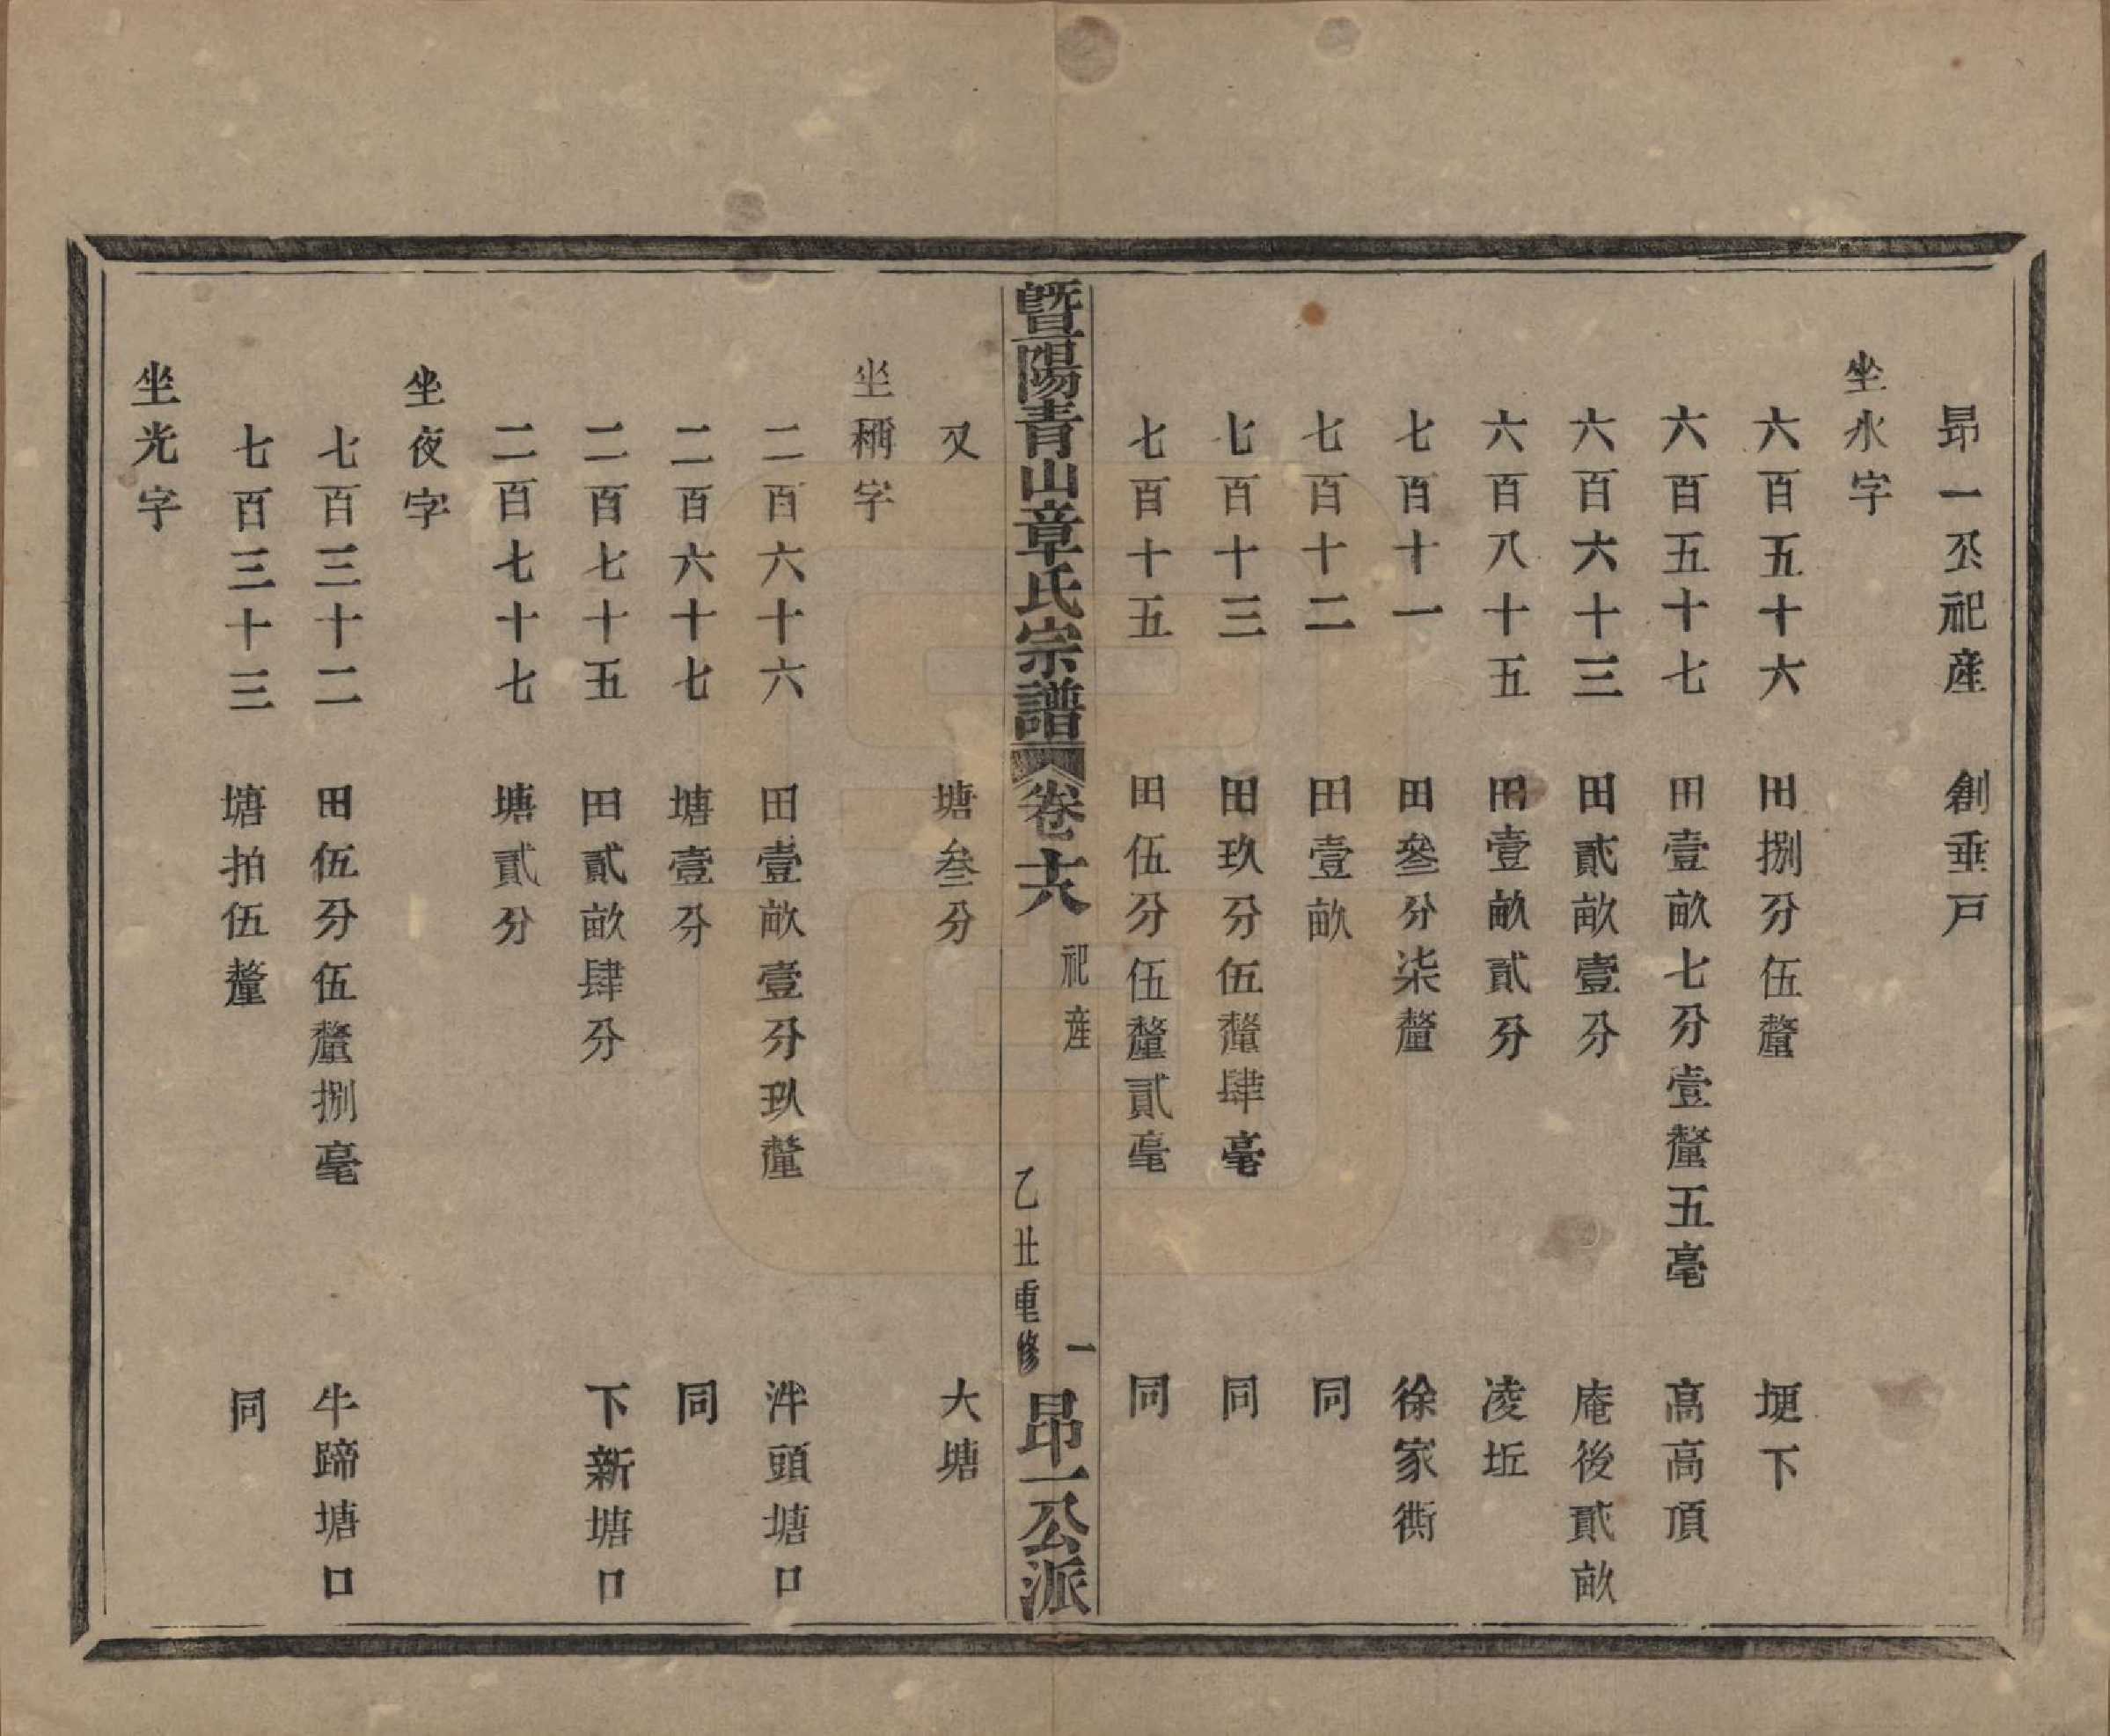 昻一公祀産　創垂戸
坐水字
六百五十六　田捌分伍釐　埂下
六百五十七　田壹畝七分壹釐五毫　高高頂
六百六十三　田貳畝壹分　庵後貳畝
六百八十五　田壹畝貳分　凌坵
七百十一　田叄分柒釐　徐家衖
七百十二　田壹畝　同
七百十三　田玖分伍釐肆毫　同
七百十五　田伍分伍釐貳毫　同
暨陽青山章氏宗譜　卷十六　祀産　一　乙丑重修　昻一公派
又　塘叁分　大塘
坐稱字
二百六十六　田壹畝壹分玖釐　泮頭塘口
二百六十七　塘壹分　同
二百七十五　田貳畝肆分　下新塘口
二百七十七　塘貳分
坐夜字
七百三十二　田伍分伍釐捌毫　牛蹄塘口
七百三十三　塘拍伍釐　同
坐光字